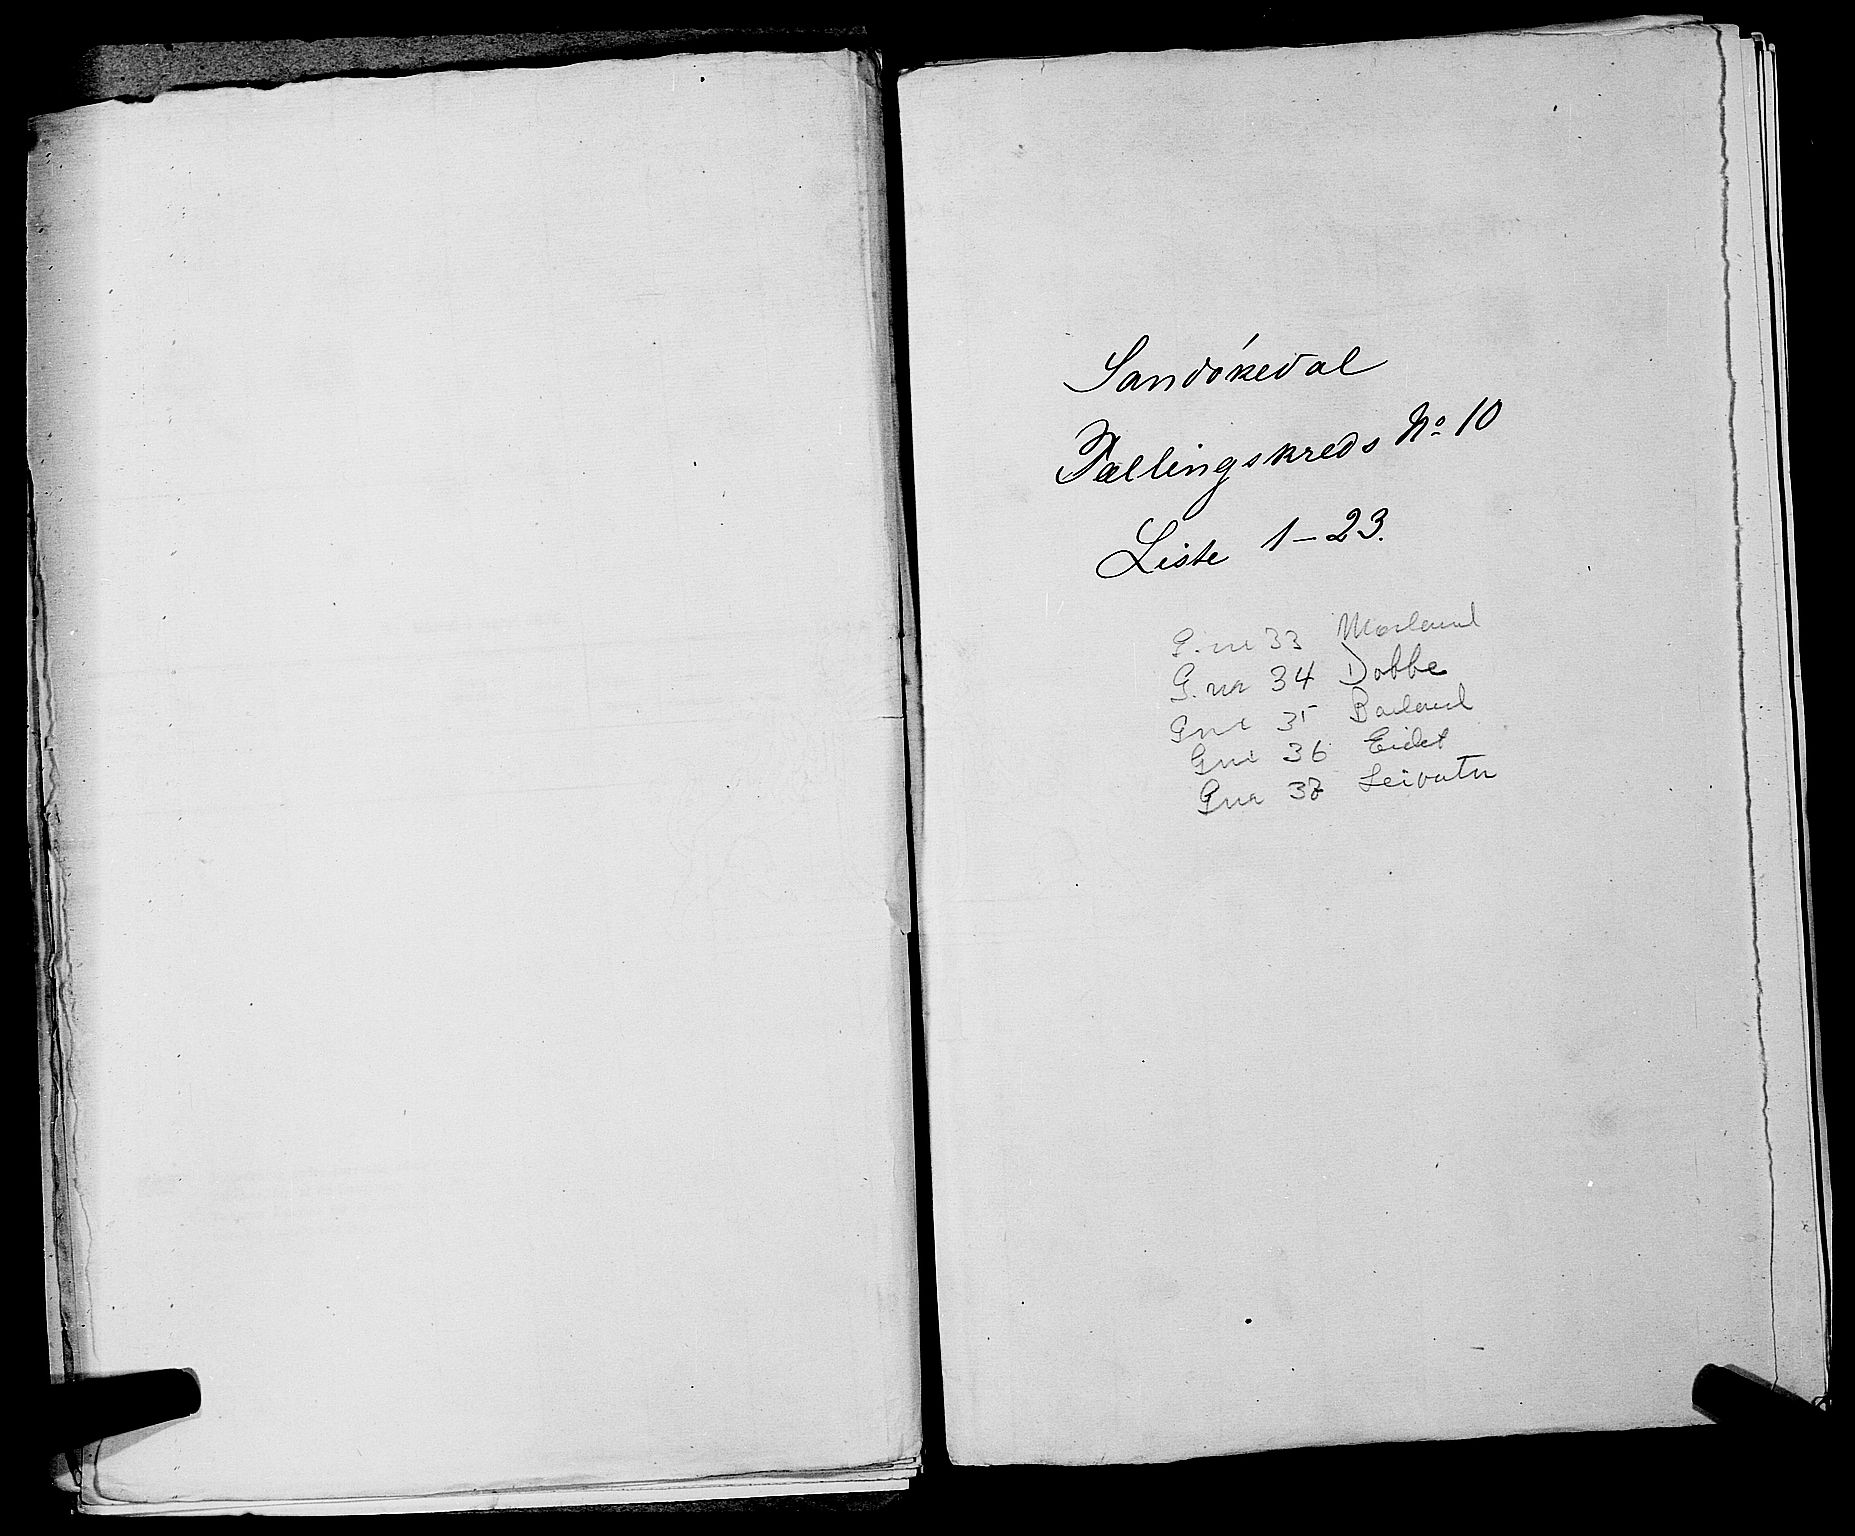 Sandökedal
Tællingskreds No 10
Liste 1-23.
G.nr 33 Morland
G.nr 34 Dobbe
Gnr 35 Barland
Gnr 36 Eidet
Gnr 37 Leivatn